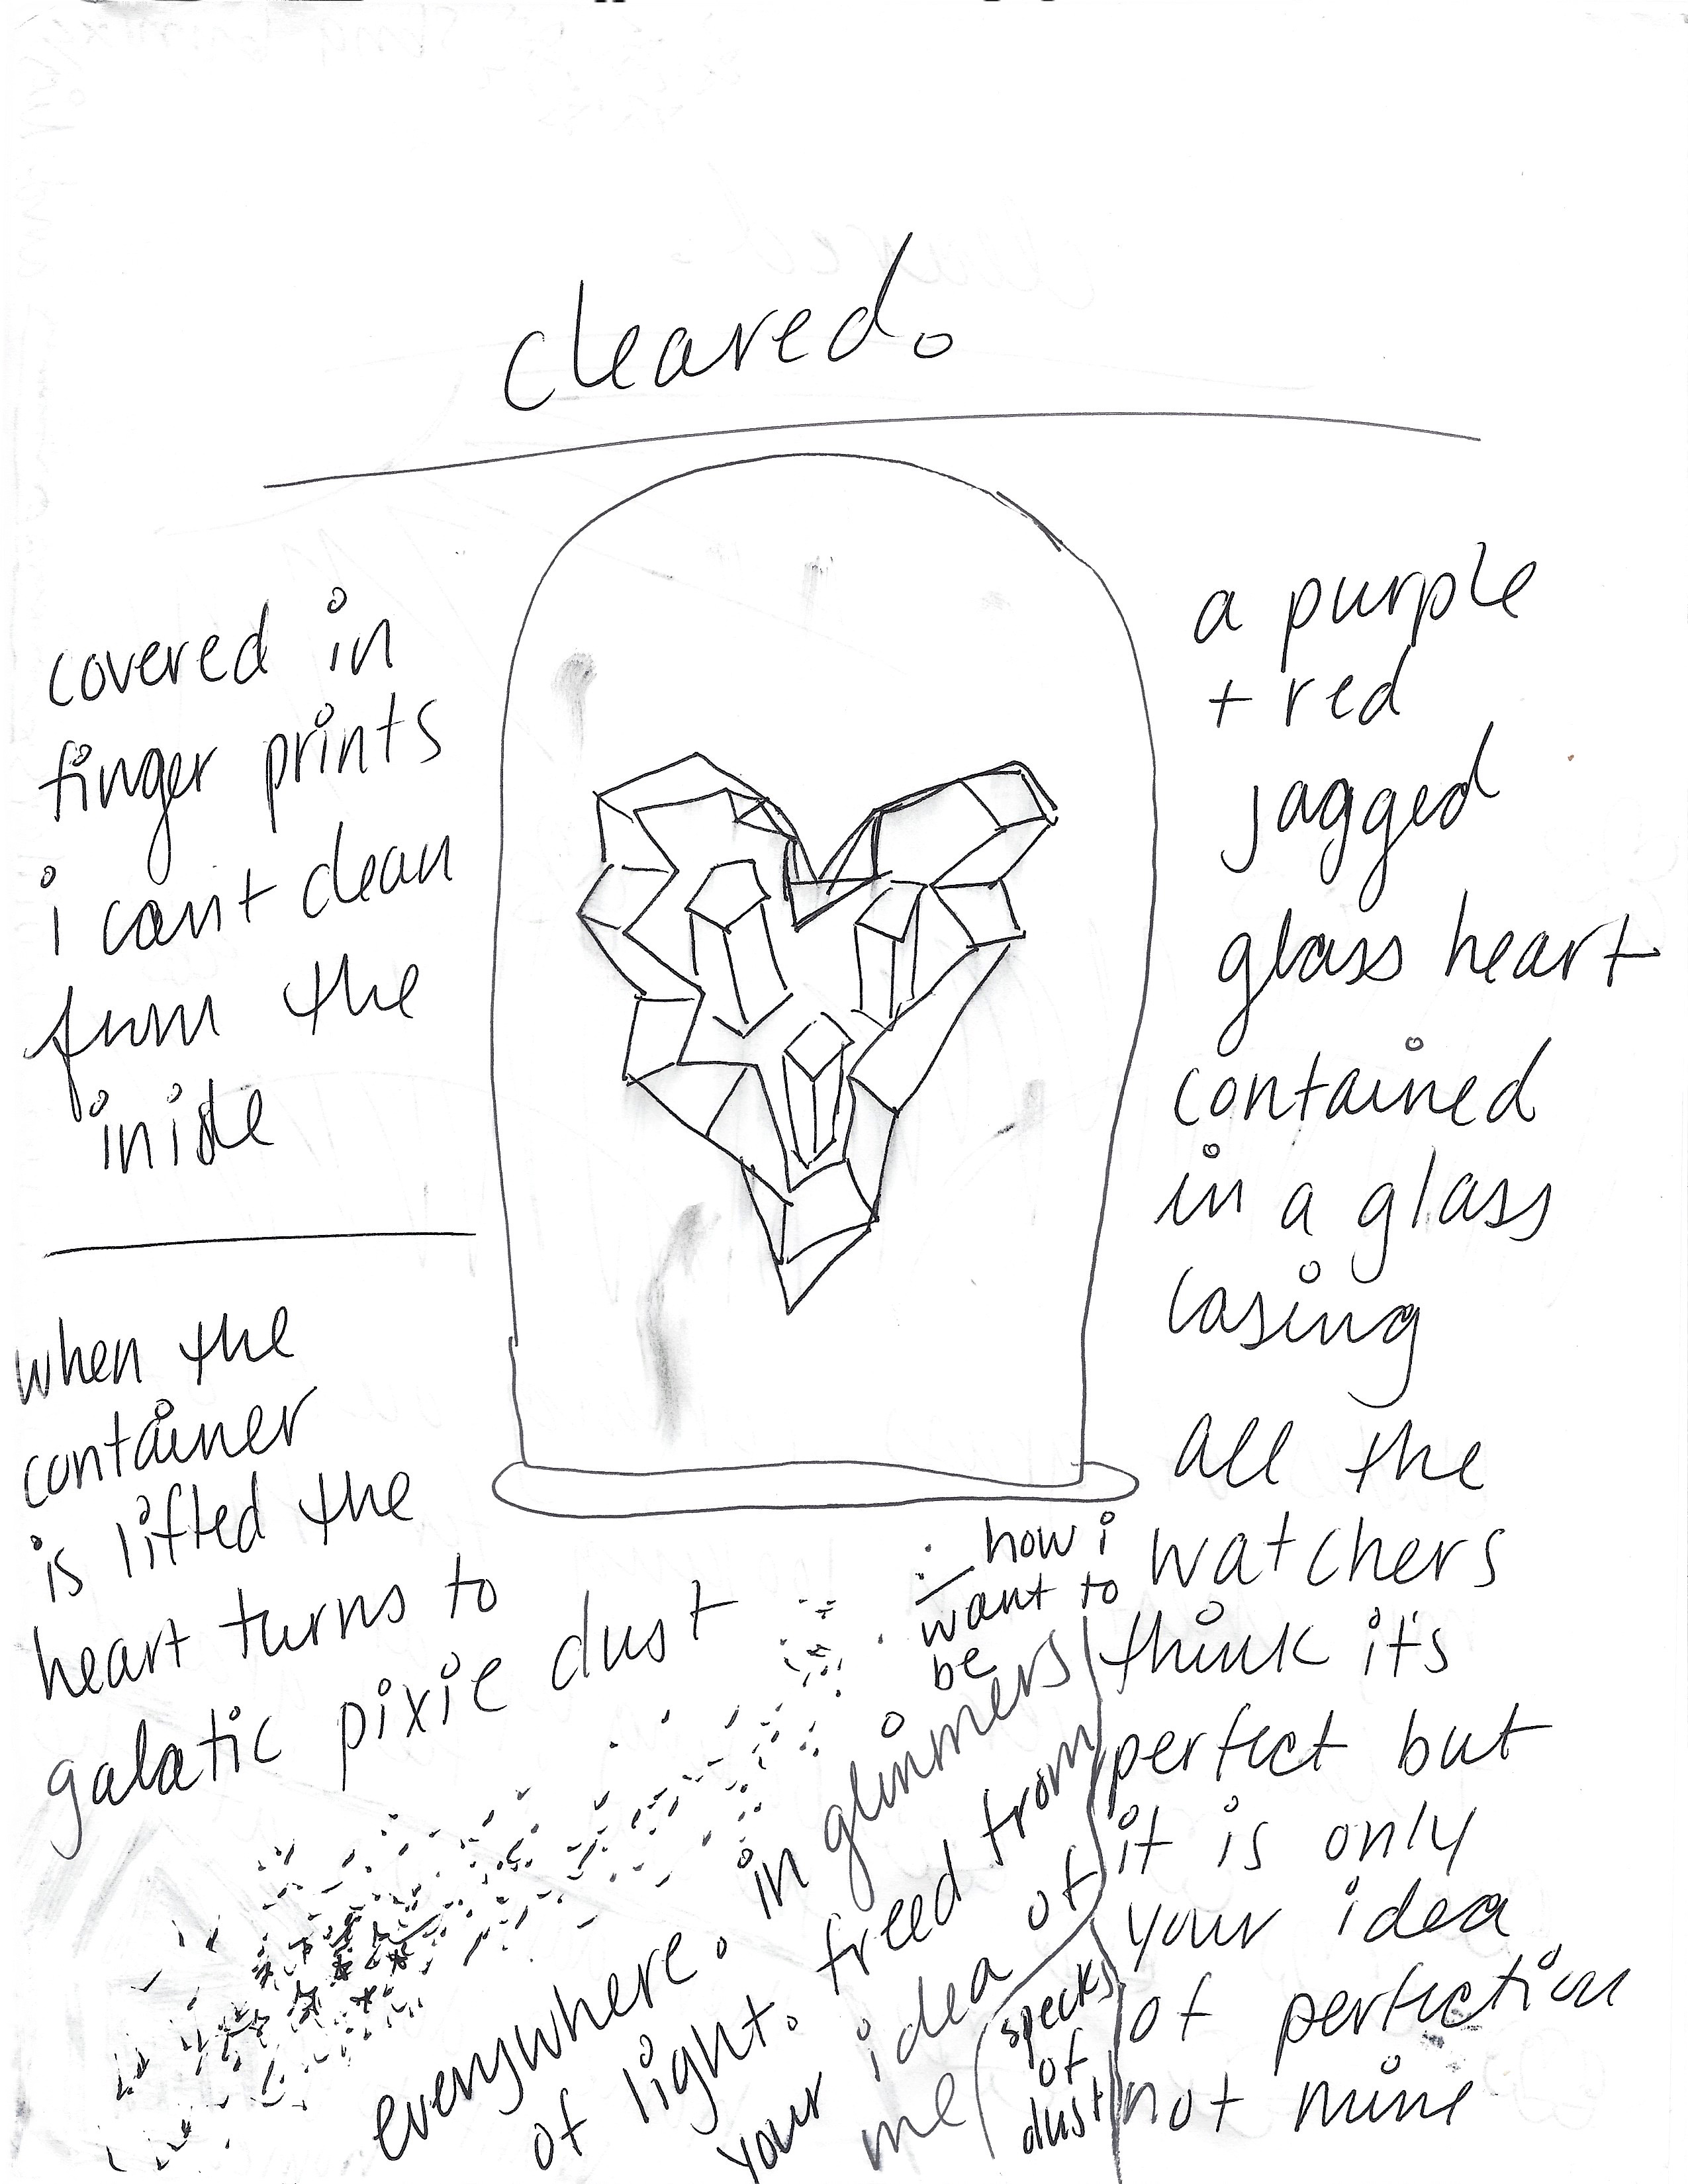 cleared.
covered in
finger prints
i can't clean
from the
iniside
a purple
+ red
jagged
glass heart
contained
in a glass
casing
all the
watchers
think it's
perfect but
it is only
your idea
of perfection
not mine
when the
container
is lifted the
heart turns to
galatic pixie dust
everywhere. in glimmers
of light. freed from
your idea of
me
how i
want to
be
specks
of
dust